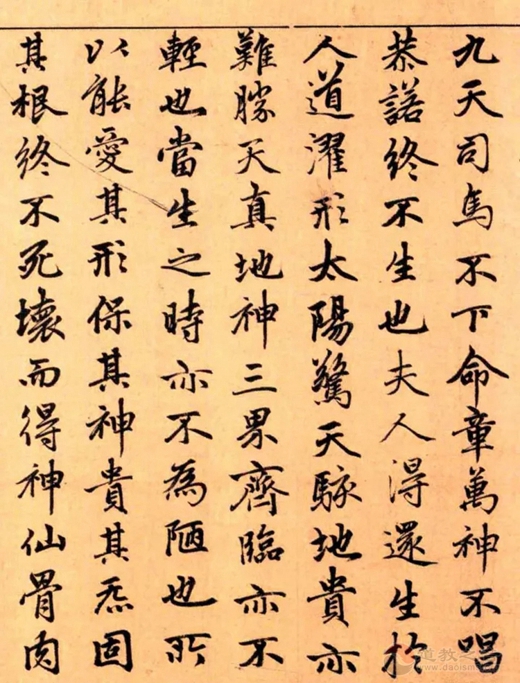 九天司馬不下命章萬神不唱
恭諾終不生也夫人得還生於
人道濯形太陽驚天駭地貴亦
難勝天真地神三界齊臨亦不
輕也當生之時亦不為陋也所
以能愛其形保其神貴其炁固
其根終不死壞而得神仙骨肉
道教之